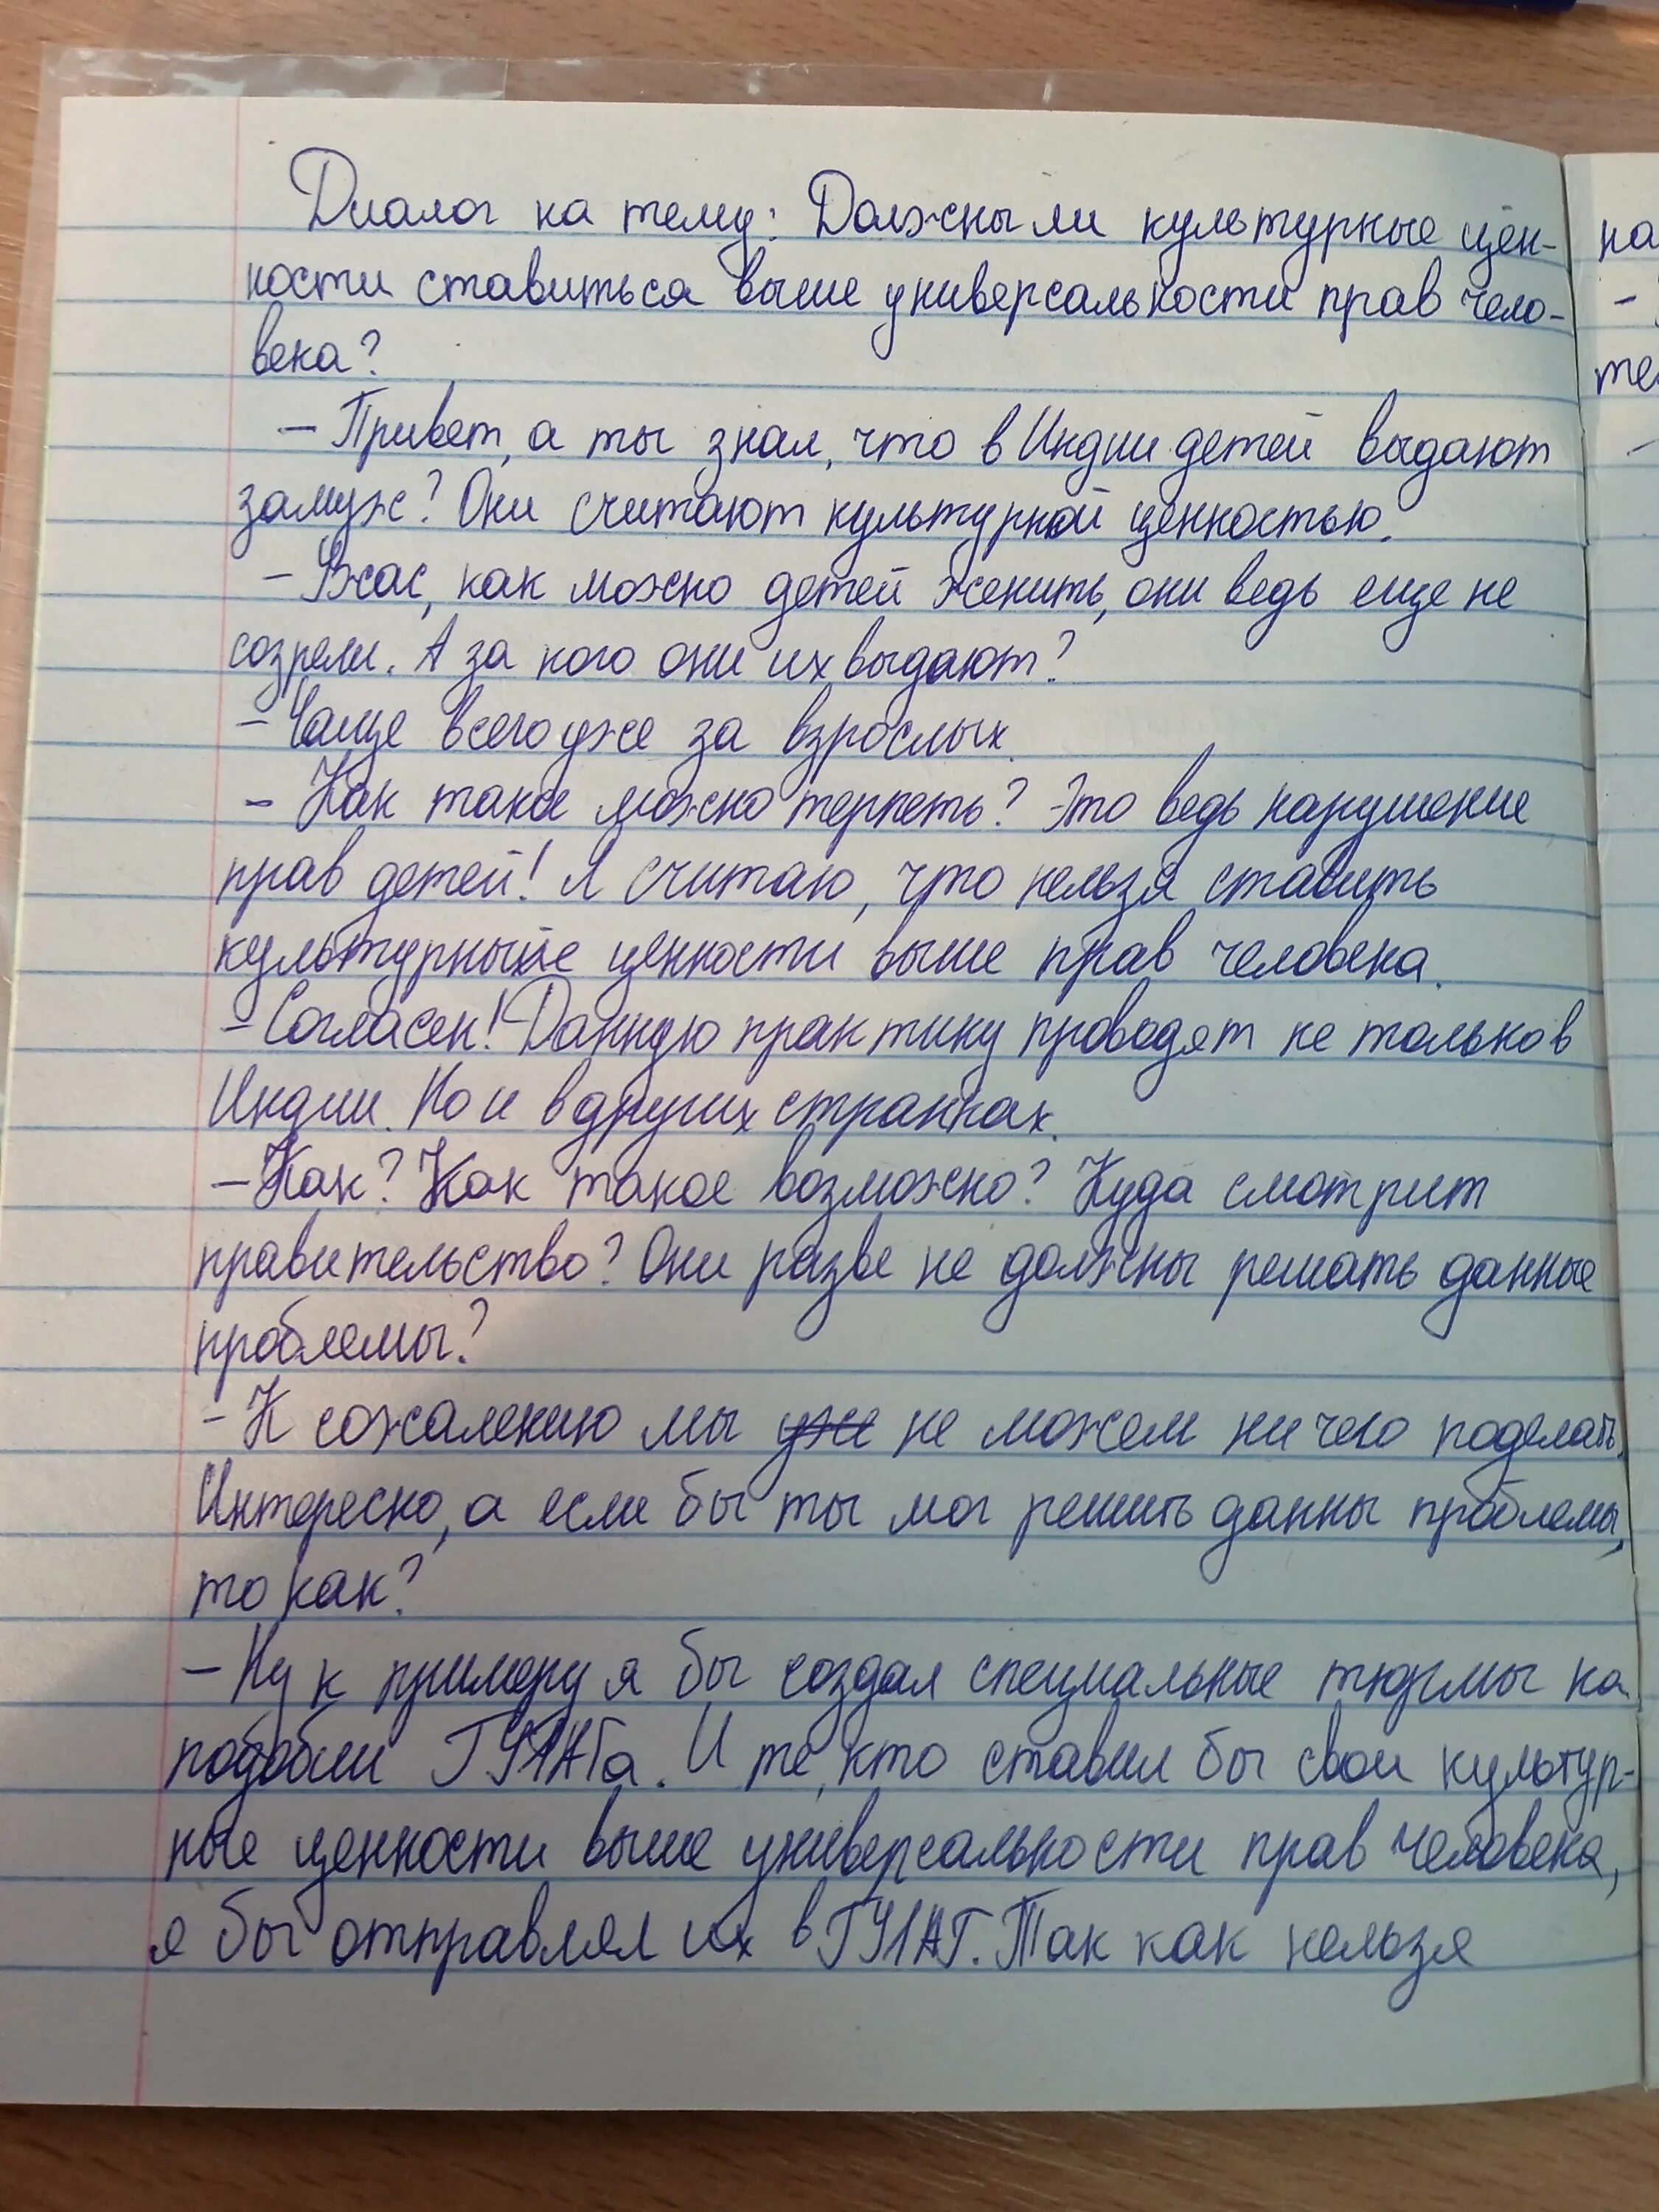 Диалог на тему: Должны ли культурные цен-
ности ставиться выше универсальности прав чело-
века?
– Привет, а ты знал, что в Индии детей выдают
замуж? Они считают культурной ценностью.
– Ужас, как можно детей женить, они ведь еще не
созрели. А за кого они их выдают?
– Чаще всего уже за взрослых.
– Как такое можно терпеть? Это ведь нарушение
прав детей! Я считаю, что нельзя ставить
культурные ценности выше прав человека.
– Согласен! Данную практику проводят не только в
Индии. Но и в других странах.
– Как? Как такое возможно? Куда смотрит
правительство? Они разве не должны решать данные
проблемы?
– К сожалению мы уже не можем ни чего поделать.
Интересно, а если бы ты мог решить данны проблемы,
то как?
– Ну к примеру я бы создал специальные тюрмы на
подобии ГУЛАГа. И те, кто ставил бы свои культур-
ные ценности выше универсальности прав человека,
я бы отправлял их в ГУЛАГ. Так как нельзя
на
–
те
–